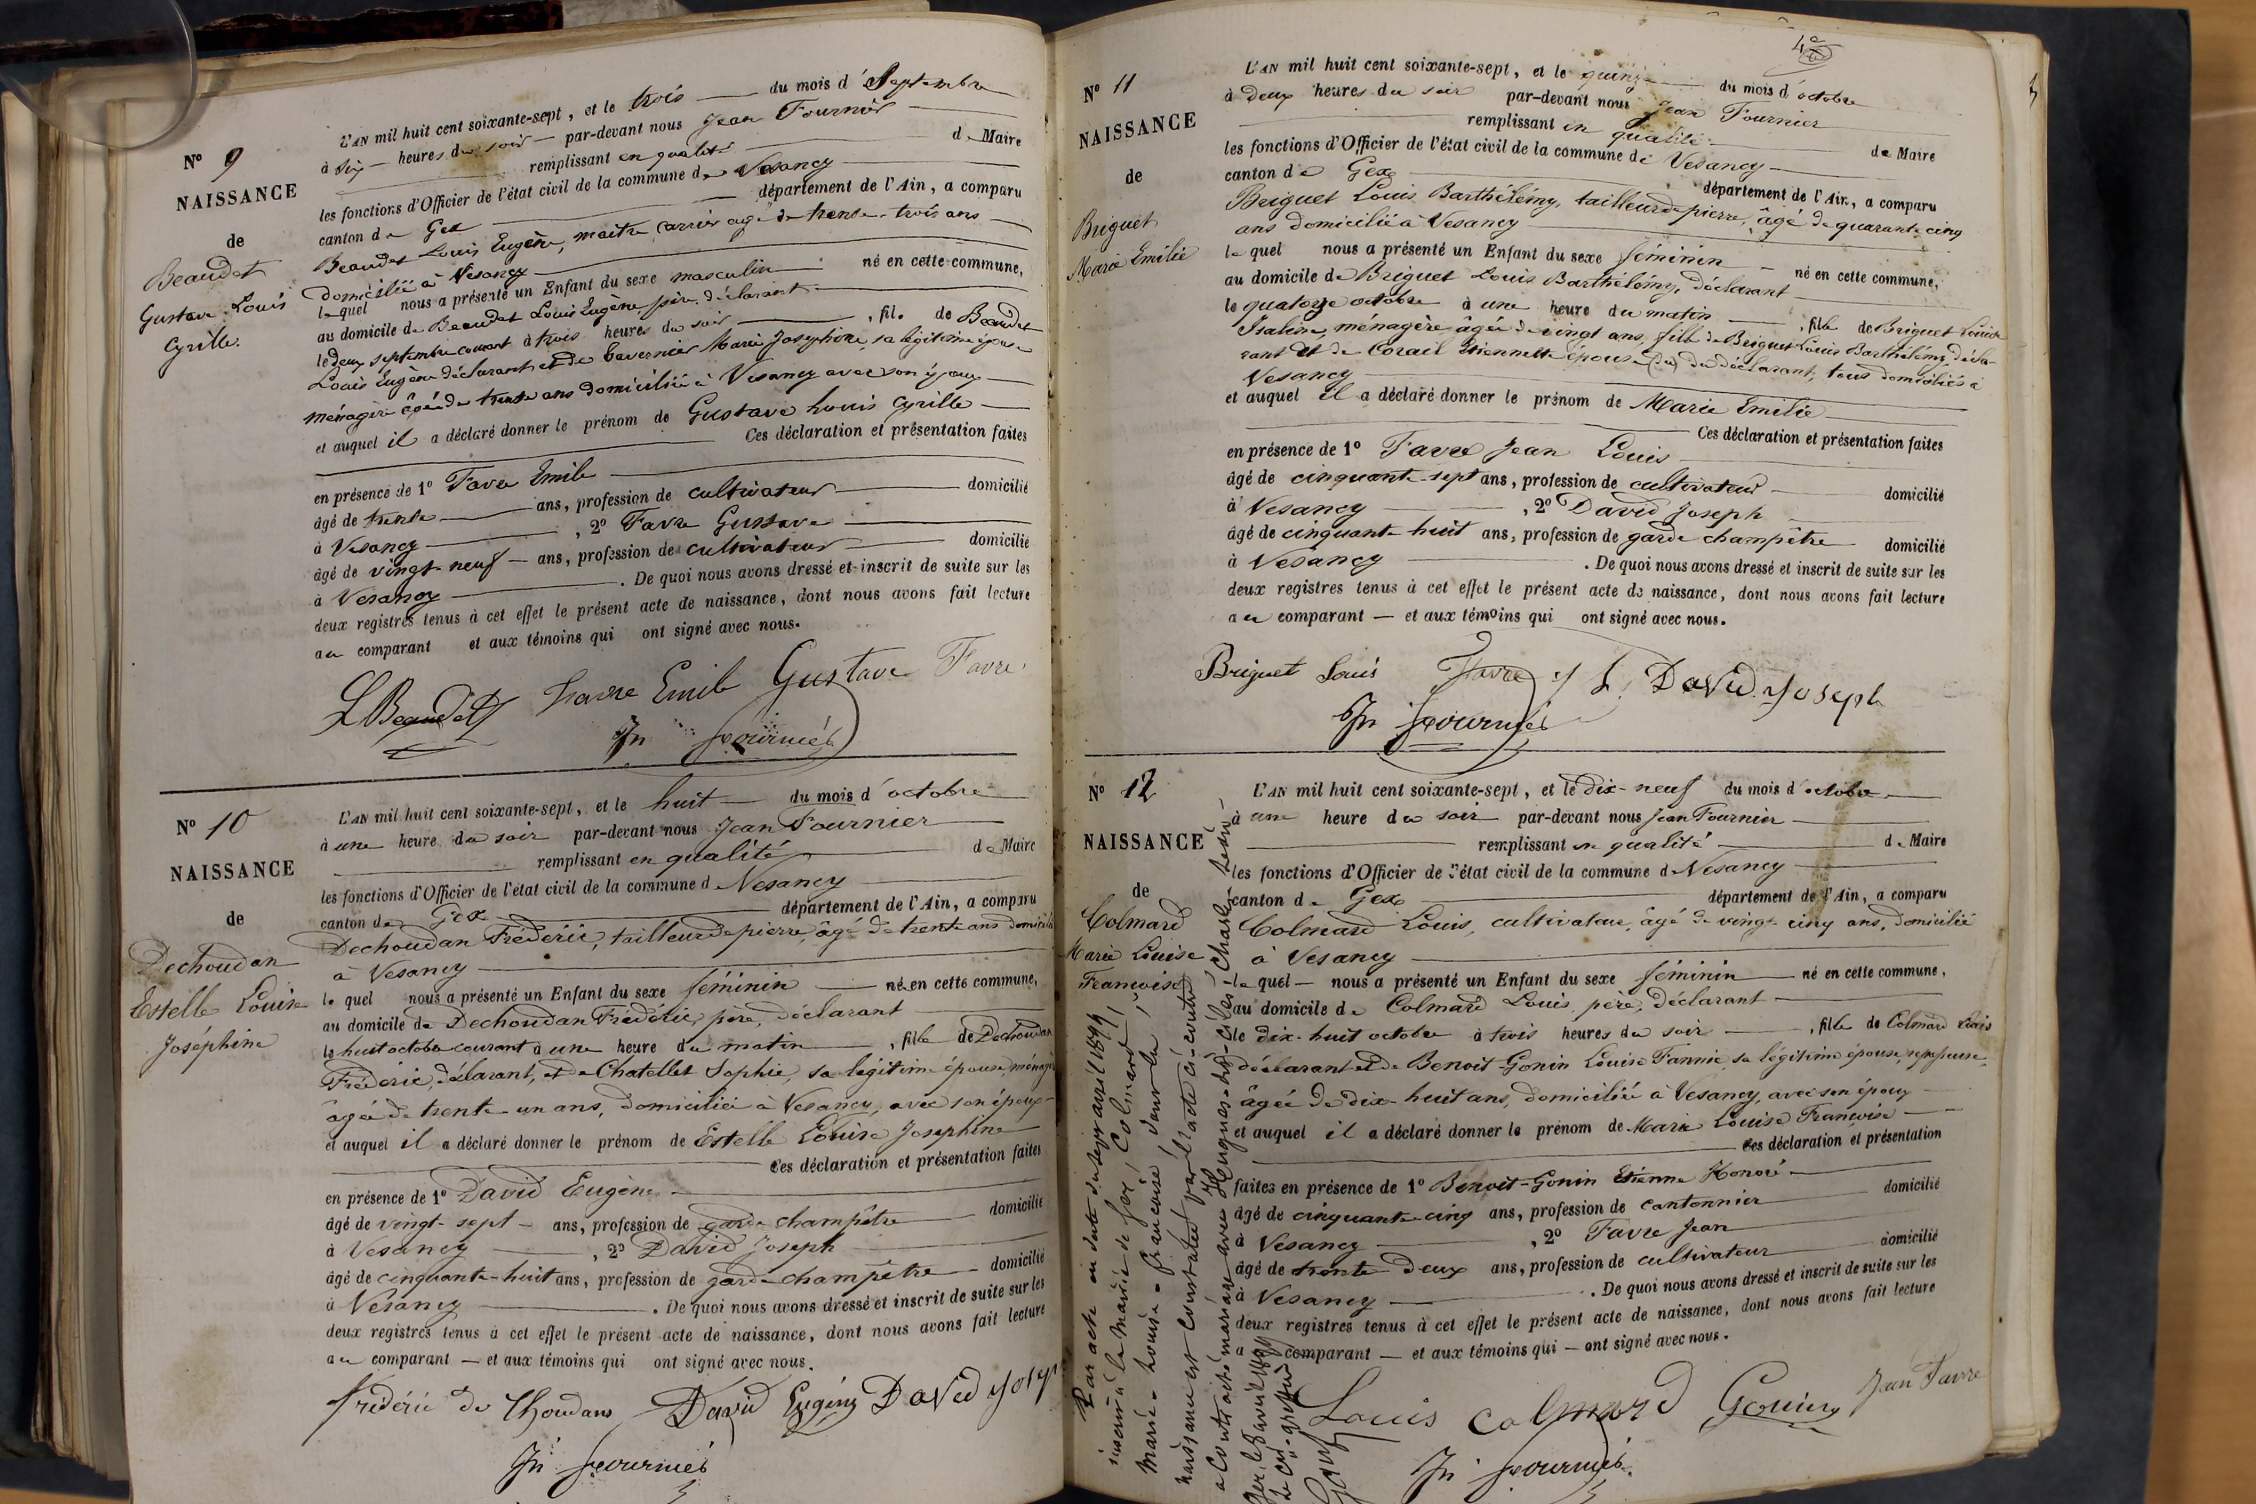 N° 9
NAISSANCE
de
Beaudet
Gustave Louis
Cyrille.
L'AN mil huit cent soixante-sept, et le trois du mois d Septembre
à six heures du soir par-devant nous Jean Fournier
remplissant en qualité de Maire
les fonctions d'Officier de l'état civil de la commune de Vesancy
canton de Gex département de l'Ain, a comparu
Beaudet Louis Eugène, maître carrier agé de trente-trois ans
domicilié à Vesancy
lequel nous a présenté un Enfant du sexe masculin né en cette commune,
au domicile de Beaudet Louis Eugène, père, déclarant
le deux septembre courant à trois heures du soir, fils de Beaudet
Louis Eugène déclarant et de Marie Josephine, sa légitime épouse
ménagère âgée de trente ans domiciliée à Vesancy avec son époux
et auquel il a déclaré donner le prénom de Gustave Louis Cyrille
Ces déclaration et présentation faites
en présence de 1° Favre Emile
âgé de trente ans, profession de cultivateur domicilié
à Vesancy, 2° Favre Gustave
âgé de vingt-neuf ans, profession de cultivateur domicilié
à Vesancy. De quoi nous avons dressé et inscrit de suite sur les
deux registres tenus à cet effet le présent acte de naissance, dont nous avons fait lecture
au comparant et aux témoins qui ont signé avec nous.
L Beaudet Favre Emile Gustave Favre
Jn Fournier
N° 10
NAISSANCE
de
Dechoudan
Estelle Louise
Joséphine
L'AN mil huit cent soixante-sept, et le huit du mois d'octobre
à une heure du soir par-devant nous Jean Fournier
remplissant en qualité de Maire
les fonctions d'Officier de l'état civil de la commune d Vesancy
canton de Gex département de l'Ain, a comparu
Dechoudan Fréderic, tailleur de pierre, âgé de trente ans domicilié
à Vesancy
le quel nous a présenté un Enfant du sexe féminin né en cette commune,
au domicile de Dechoudan Fréderic, père, déclarant
le huit octobre courant à une heure du matin, fille de Dechoudan
Fréderic, déclarant, et de Chatellet Sophie, sa légitime épouse, ménagère
âgée de trente-un ans, domiciliée à Vesancy, avec son époux
et auquel il a déclaré donner le prénom de Estelle Louise Josephine
Ces déclaration et présentation faites
en présence de 1° David Eugène
âgé de vingt-sept ans, profession de garde champêtre domicilié
à Vesancy, 2° David Joseph
âgé de cinquante-huit ans, profession de garde champêtre domicilié
à Vesancy. De quoi nous avons dressé et inscrit de suite sur les
deux registres tenus à cet effet le présent acte de naissance, dont nous avons fait lecture
au comparant et aux témoins qui ont signé avec nous.
Fréderic de Choudans David Eugène David Joseph
Jn Fournier
N° 11
NAISSANCE
de
Briguet
Marie Emilie
L'AN mil huit cent soixante-sept, et le quinze du mois d'octobre
à deux heures du soir par-devant nous Jean Fournier
remplissant en qualité de Maire
les fonctions d'Officier de l'état civil de la commune de Vesancy
canton de Gex département de l'Ain, a comparu
Briguet Louis Barthélémy, tailleur de pierre, âgé de quarante cinq
ans domicilié à Vesancy
le quel nous a présenté un Enfant du sexe féminin né en cette commune,
au domicile de Briguet Louis Barthélémy, déclarant
le quatorze octobre à une heure du matin, fille de Briguet Louise
Isaline, ménagère âgée de vingt ans, fille de Briguet Louis Barthélémy, décla-
rant et de Corail Etiennette épouse du déclarant, tous domiciliés à
Vesancy
et auquel il a déclaré donner le prénom de Marie Emilie
Ces déclaration et présentation faites
en présence de 1° Favre Jean Louis
âgé de cinquante-sept ans, profession de cultivateur domicilié
à Vesancy, 2° David Joseph
âgé de cinquante-huit ans, profession de garde champêtre domicilié
à Vesancy. De quoi nous avons dressé et inscrit de suite sur les
deux registres tenus à cet effet le présent acte de naissance, dont nous avons fait lecture
au comparant et aux témoins qui ont signé avec nous.
Briguet Louis Favre J L David Joseph
Jn Fournier
N° 12
NAISSANCE
de
Colmard
Marie Louise
Françoise
L'AN mil huit cent soixante-sept, et le dix-neuf du mois d'octobre
à une heure du soir par-devant nous Jean Fournier
remplissant en qualité de Maire
les fonctions d'Officier de l'état civil de la commune d Vesancy
canton de Gex département de l'Ain, a comparu
Colmard Louis, cultivateur, âgé de vingt-cinq ans, domicilié
à Vesancy
le quel nous a présenté un Enfant du sexe féminin né en cette commune,
au domicile de Colmard Louis, père, déclarant
le dix-huit octobre à trois heures du soir, fille de Colmard Louis
déclarant et de Benoit-Gonin Louise Fannie, sa légitime épouse, repasseuse,
âgée de dix-huit ans, domiciliée à Vesancy, avec son époux
et auquel il a déclaré donner le prénom de Marie Louise Françoise
Ces déclaration et présentation
faites en présence de 1° Benoit-Gonin Etienne Honoré
âgé de cinquante-cinq ans, profession de cantonnier domicilié
à Vesancy, 2° Favre Jean
âgé de trente deux ans, profession de cultivateur domicilié
à Vesancy. De quoi nous avons dressé et inscrit de suite sur les
deux registres tenus à cet effet le présent acte de naissance, dont nous avons fait lecture
a comparant et aux témoins qui ont signé avec nous.
Louis Colmard Gonin Jean Favre
Jn Fournier
Par acte en date du sept avril 1899
inscrit à la mairie de Gex, Colmard
Marie-Louise-Françoise, dont la
naissance est constatée par l'acte ci-contre
a contracté mariage avec Hugues
Gex, le avril 1899